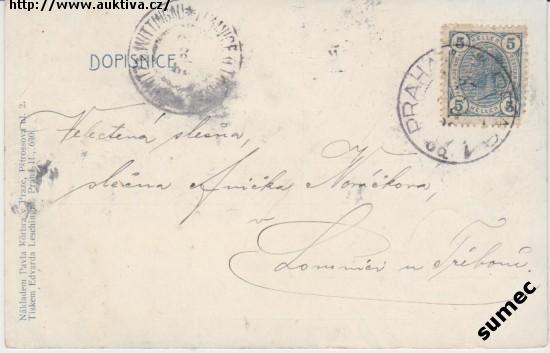 http://www.auktiva.cz/
DOPISNICE
WITTINGAU
PRAHA
5 5
HELLER
5 5
Veletěná slečna,
slečna Anička Nováčkova,
v
Lomnici u Třeboně.
Nákladem Pavla Körbra v Praze, Pštrossova ul. 2.
Tiskem Edvarda Leschingra, Praha-II.,
sumec